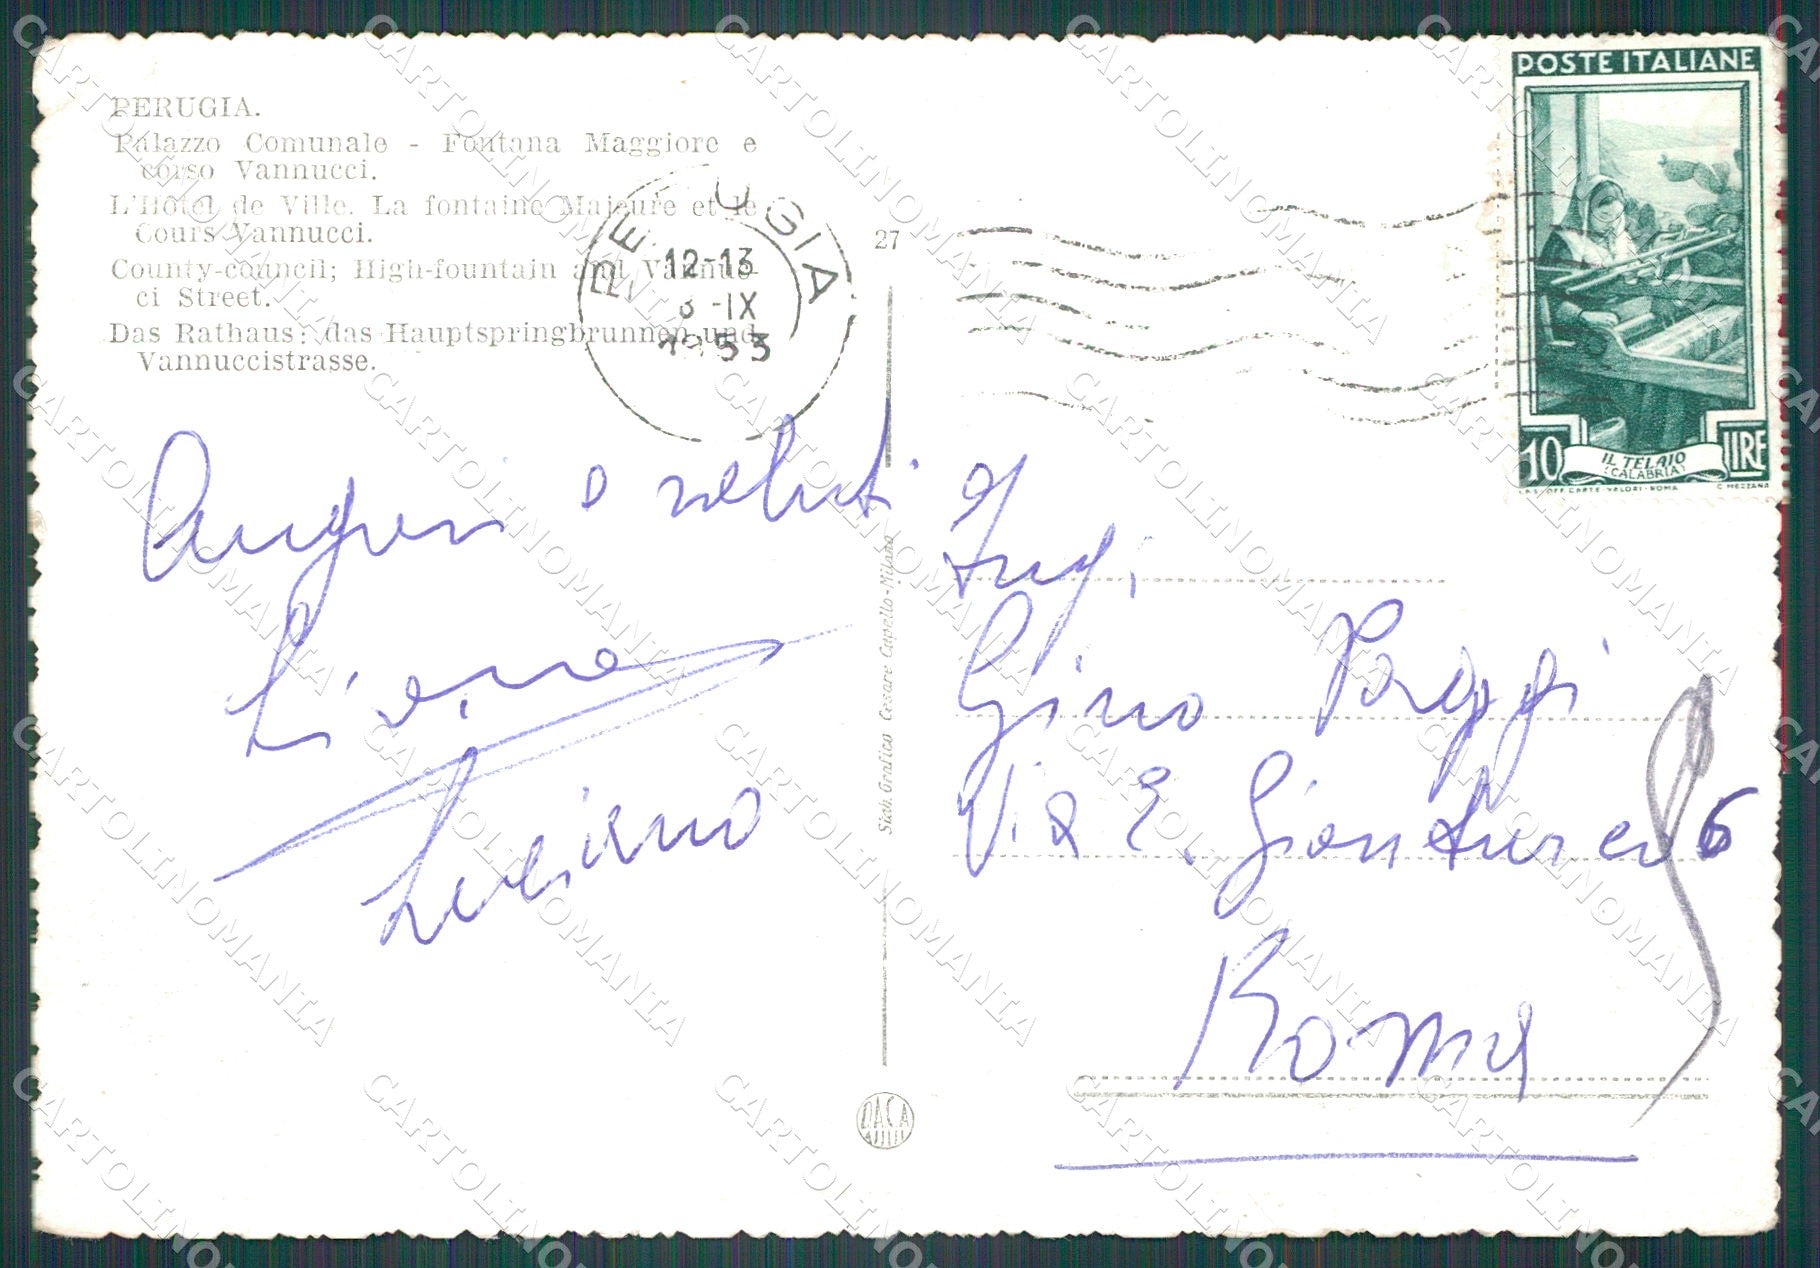 PERUGIA.
Palazzo Comunale - Fontana Maggiore e
corso Vannucci.
L'Hôtel de Ville. La fontaine Majeure et le
Cours Vannucci.
County-council; High-fountain and Vannuc-
ci Street.
Das Rathaus: das Hauptspringbrunnen und
Vannuccistrasse.
PERUGIA
12-13
3-IX
1953
27
POSTE ITALIANE
10 LIRE
IL TELAIO
(CALABRIA)
I.P.S. OFF. CARTE-VALORI-ROMA
C. MEZZANA
Auguri e saluti
Luciano
Stab. Grafico Cesare Capello-Milano
Gino Poggi
Via E. Gianturco 6
Roma
CARTOLINOMANIA